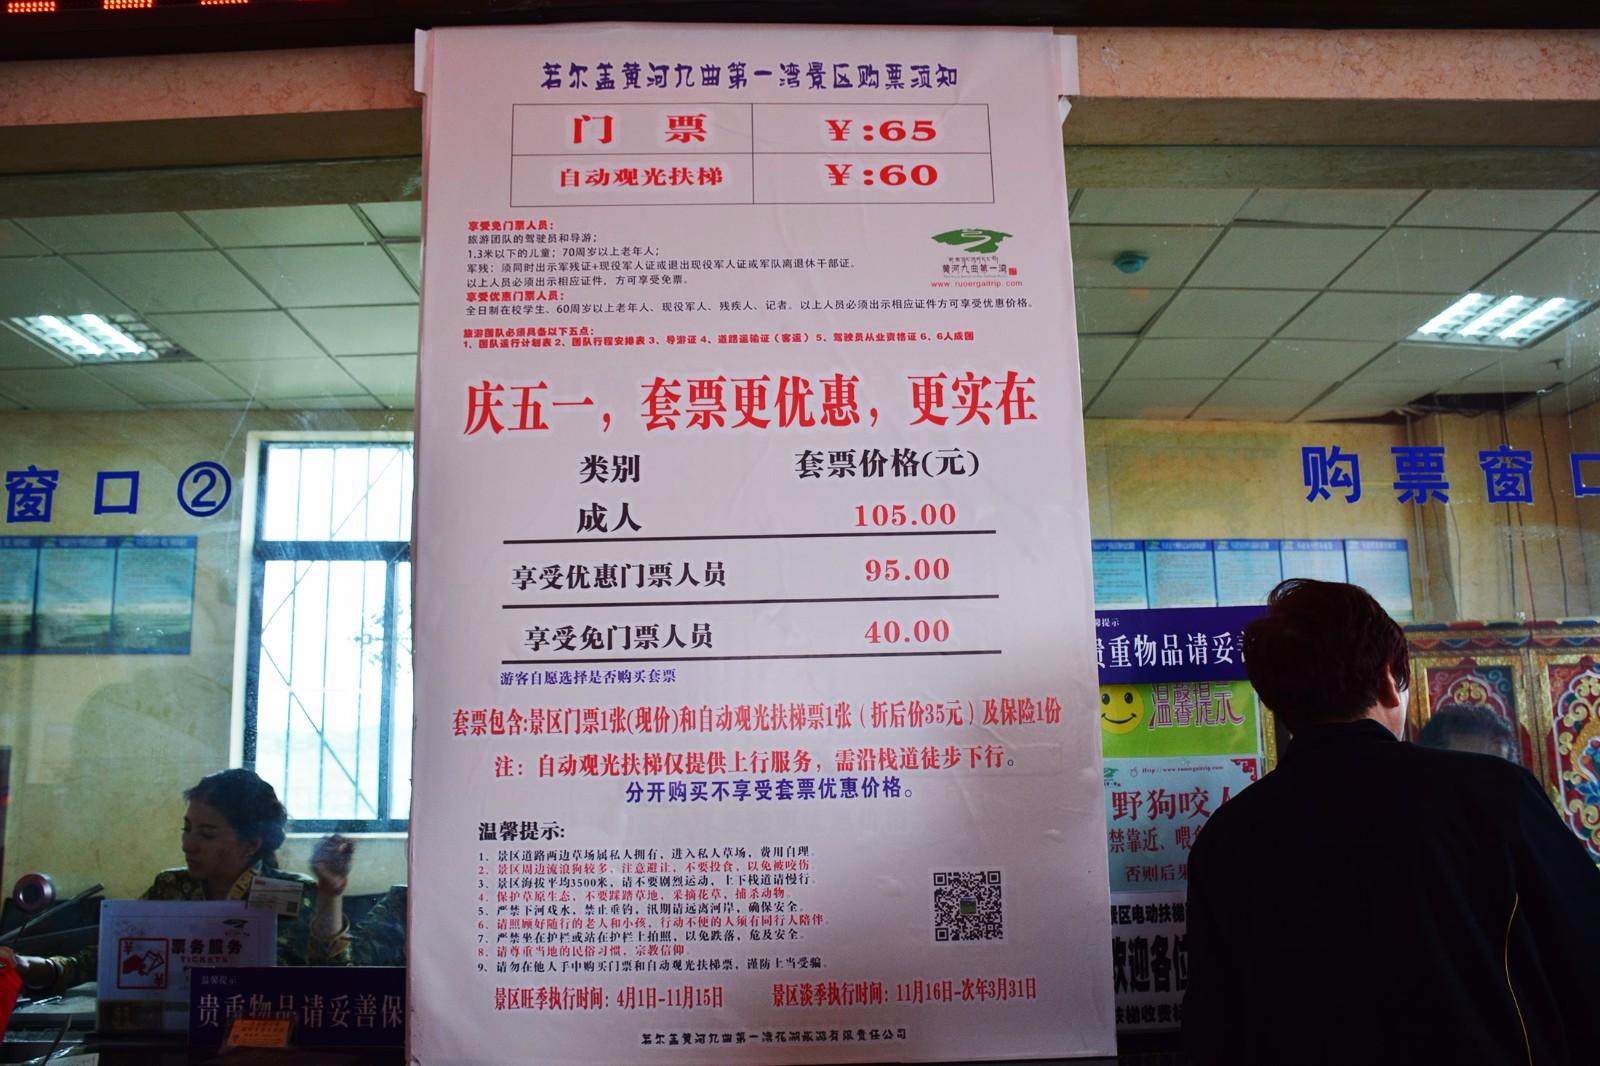 若尔盖黄河九曲第一湾景区购票须知
门 票 ¥:65
自动观光扶梯 ¥:60
享受免门票人员：
旅游团队的驾驶员和导游；
1.3米以下的儿童；70周岁以上老年人；
军残：须同时出示军残证+现役军人证或退出现役军人证或军队离退休干部证。
以上人员必须出示相应证件，方可享受免票。
享受优惠门票人员：
全日制在校学生、60周岁以上老年人、现役军人、残疾人、记者。以上人员必须出示相应证件方可享受优惠价格。
黄河九曲第一湾
www.ruoergaitrip.com
旅游团队必须具备以下五点：
1、团队运行计划表 2、团队行程安排表 3、导游证 4、道路运输证（客运）5、驾驶员从业资格证 6、6人成团
庆五一，套票更优惠，更实在
类别 套票价格(元)
成人 105.00
享受优惠门票人员 95.00
享受免门票人员 40.00
游客自愿选择是否购买套票
套票包含:景区门票1张(现价)和自动观光扶梯票1张（折后价35元）及保险1份
注：自动观光扶梯仅提供上行服务，需沿栈道徒步下行。
分开购买不享受套票优惠价格。
温馨提示:
1、景区道路两边草场属私人拥有，进入私人草场，费用自理。
2、景区周边流浪狗较多，注意避让，不要投食，以免被咬伤。
3、景区海拔平均3500米，请不要剧烈运动，上下栈道请慢行。
4、保护草原生态，不要踩踏草地、采摘花草，捕杀动物。
5、严禁下河戏水，禁止垂钓，汛期请远离河岸，确保安全。
6、请照顾好随行的老人和小孩，行动不便的人须有同行人陪伴。
7、严禁坐在护栏或站在护栏上拍照，以免跌落，危及安全。
8、请尊重当地的民俗习惯，宗教信仰。
9、请勿在他人手中购买门票和自动观光扶梯票，谨防上当受骗。
景区旺季执行时间：4月1日-11月15日 景区淡季执行时间：11月16日-次年3月31日
若尔盖黄河九曲第一湾花湖旅游有限责任公司
窗口②
票务服务
TICKETS
温馨提示
贵重物品请妥善保
购票窗口
馨提示
贵重物品请妥善
温馨提示
Http://www.ruoergaitrip.com
野狗咬人
禁靠近、喂
否则后果
景区电动扶梯
欢迎各位
扶梯收费